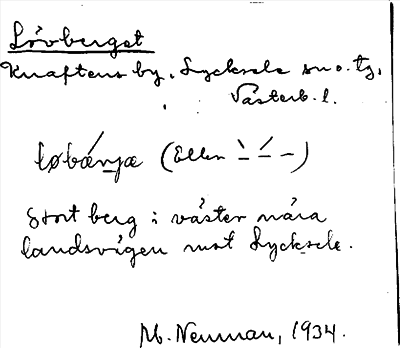 Lövberget
Knaftens by, Lycksele sn o. tg,
Västerb. l.
løbánjæ (Eller ` ´ –)
Stort berg i väster nära
landsvägen mot Lycksele.
M. Neuman, 1934.